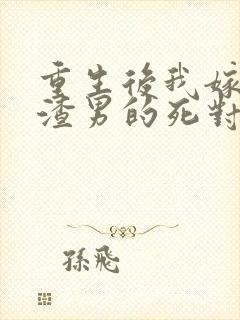 重生後我嫁
渣男的死對
孫飛